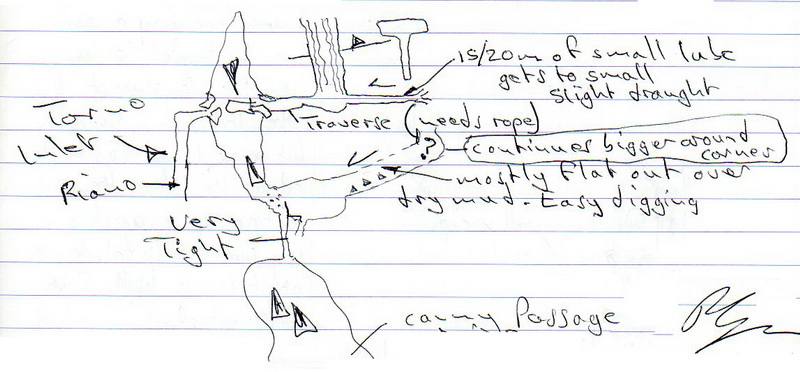 15/20m of small tube
gets to small
slight draught
Torno
Inlet
Riano
Traverse (needs rope)
?
continues bigger around
corner
mostly flat out over
dry mud - Easy digging
Very
Tight
Passage